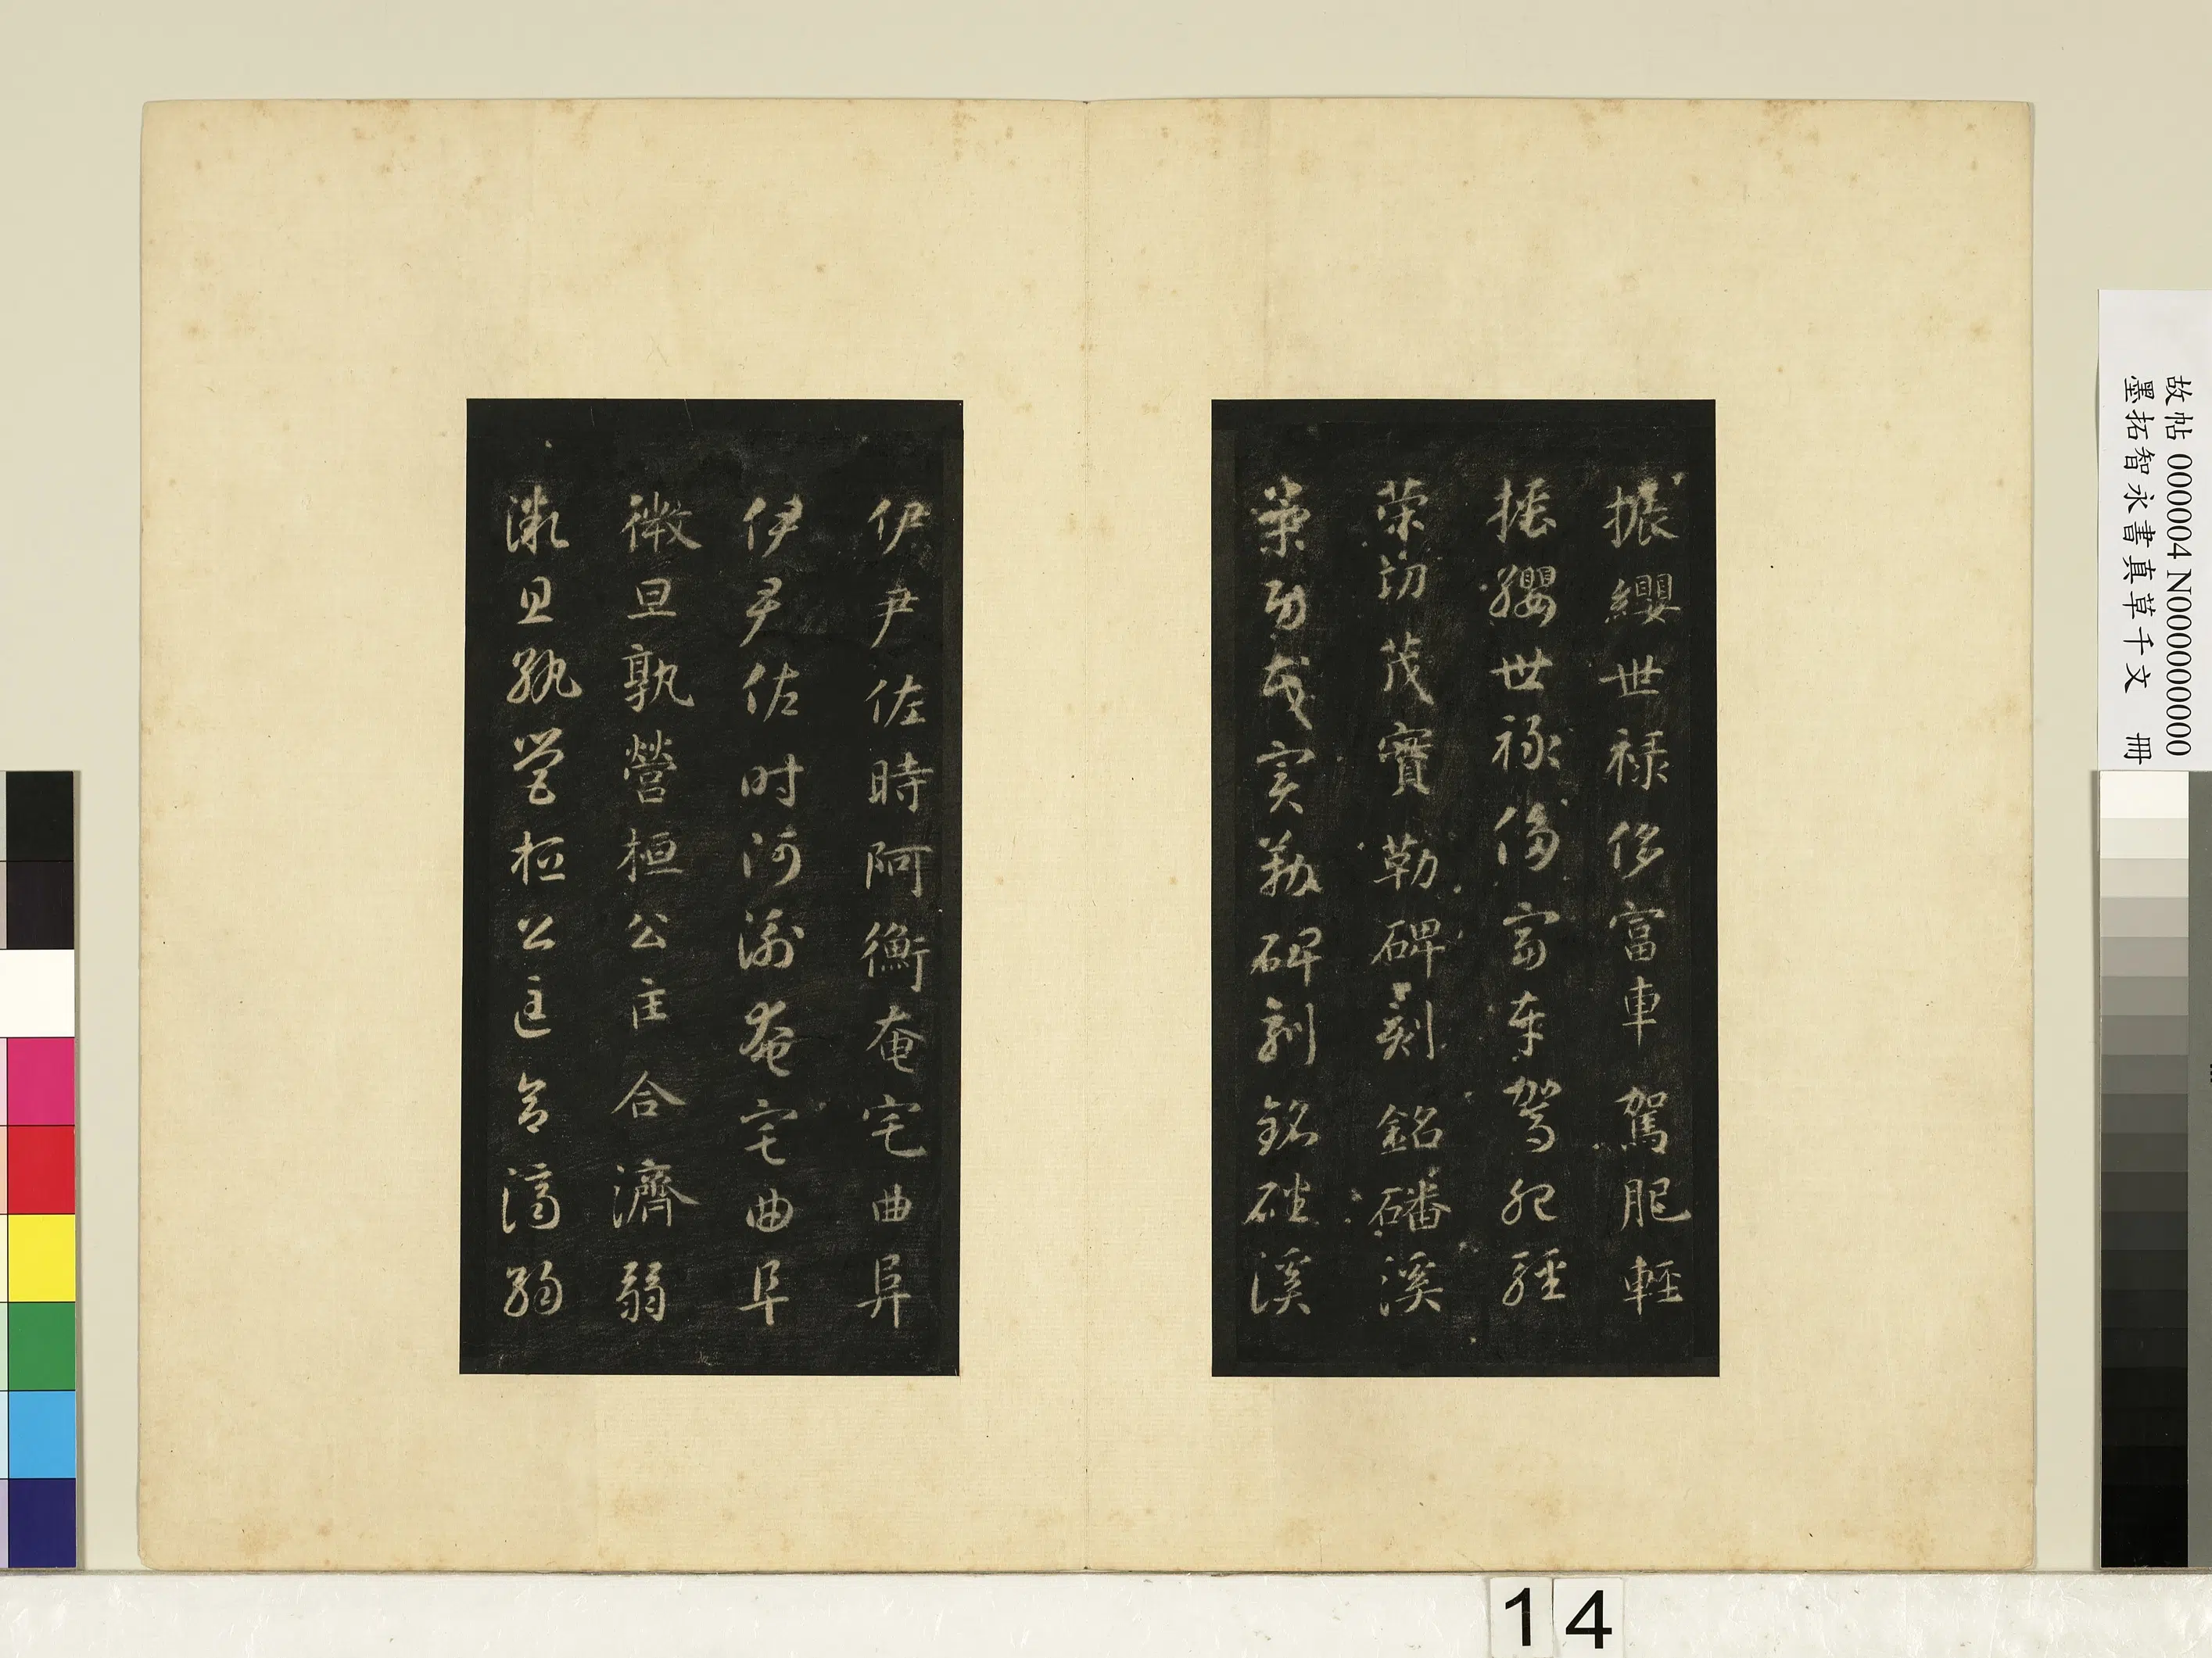 振纓世祿侈富車駕肥輕
振纓世祿侈富車駕肥輕
策功茂實勒碑刻銘磻溪
策功茂實勒碑刻銘磻溪
伊尹佐時阿衡奄宅曲阜
伊尹佐時阿衡奄宅曲阜
微旦孰營桓公匡合濟弱
微旦孰營桓公匡合濟弱
故帖 000004 N000000000
墨拓智永書真草千文 冊
14